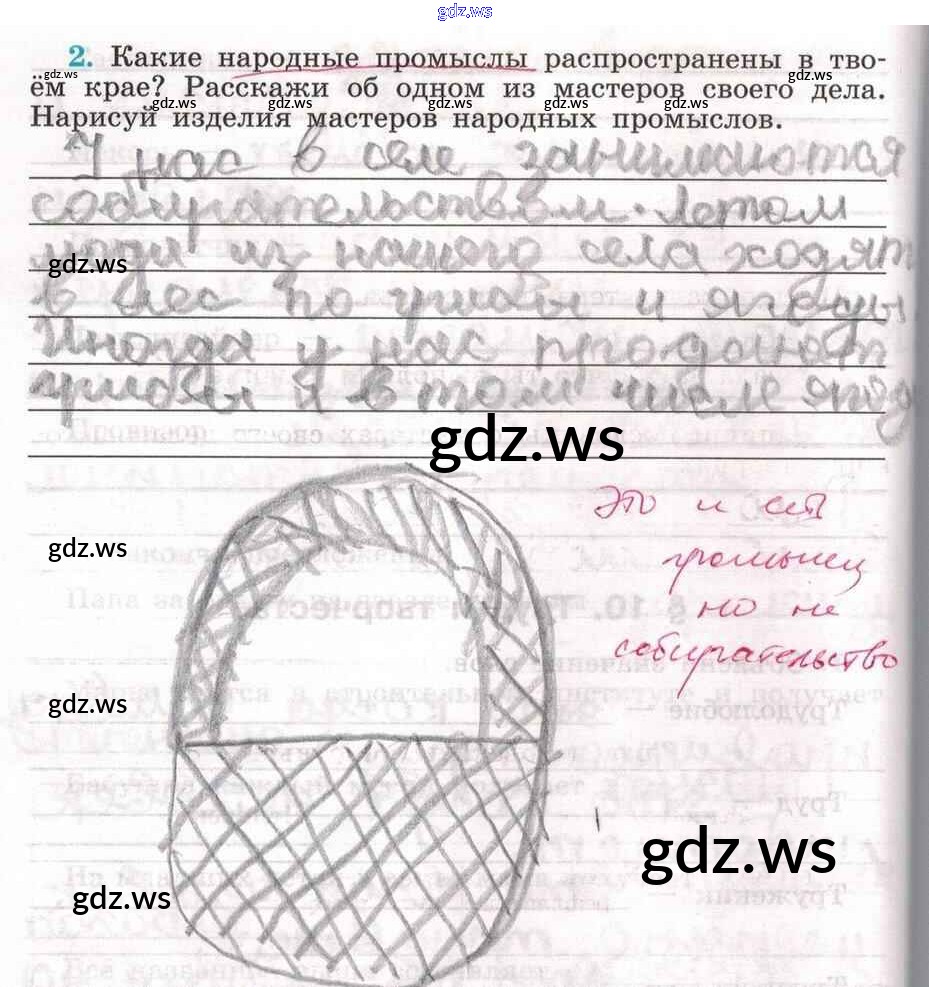 gdz.ws
2. Какие народные промыслы распространены в тво-
ём крае? Расскажи об одном из мастеров своего дела.
Нарисуй изделия мастеров народных промыслов.
gdz.ws
gdz.ws
gdz.ws
gdz.ws
gdz.ws
gdz.ws
У нас в селе занимаются
собирательством. Летом
люди из нашего села ходят
gdz.ws
в лес по грибы и ягоды.
Иногда у нас продают
грибы и в том числе ягод
gdz.ws
это и есть
промысел
но не
собирательство
gdz.ws
§ 10. Труд и творчество
gdz.ws
Трудолюбие —
Труд —
gdz.ws
gdz.ws
Труженик —